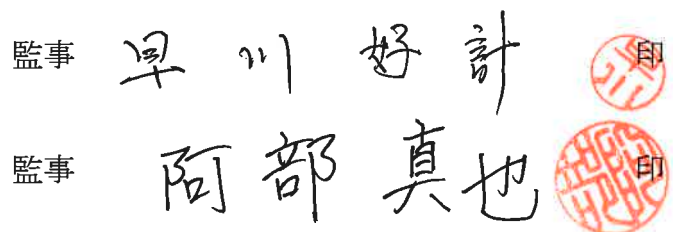 監事 早川好計 印
監事 阿部真也 印